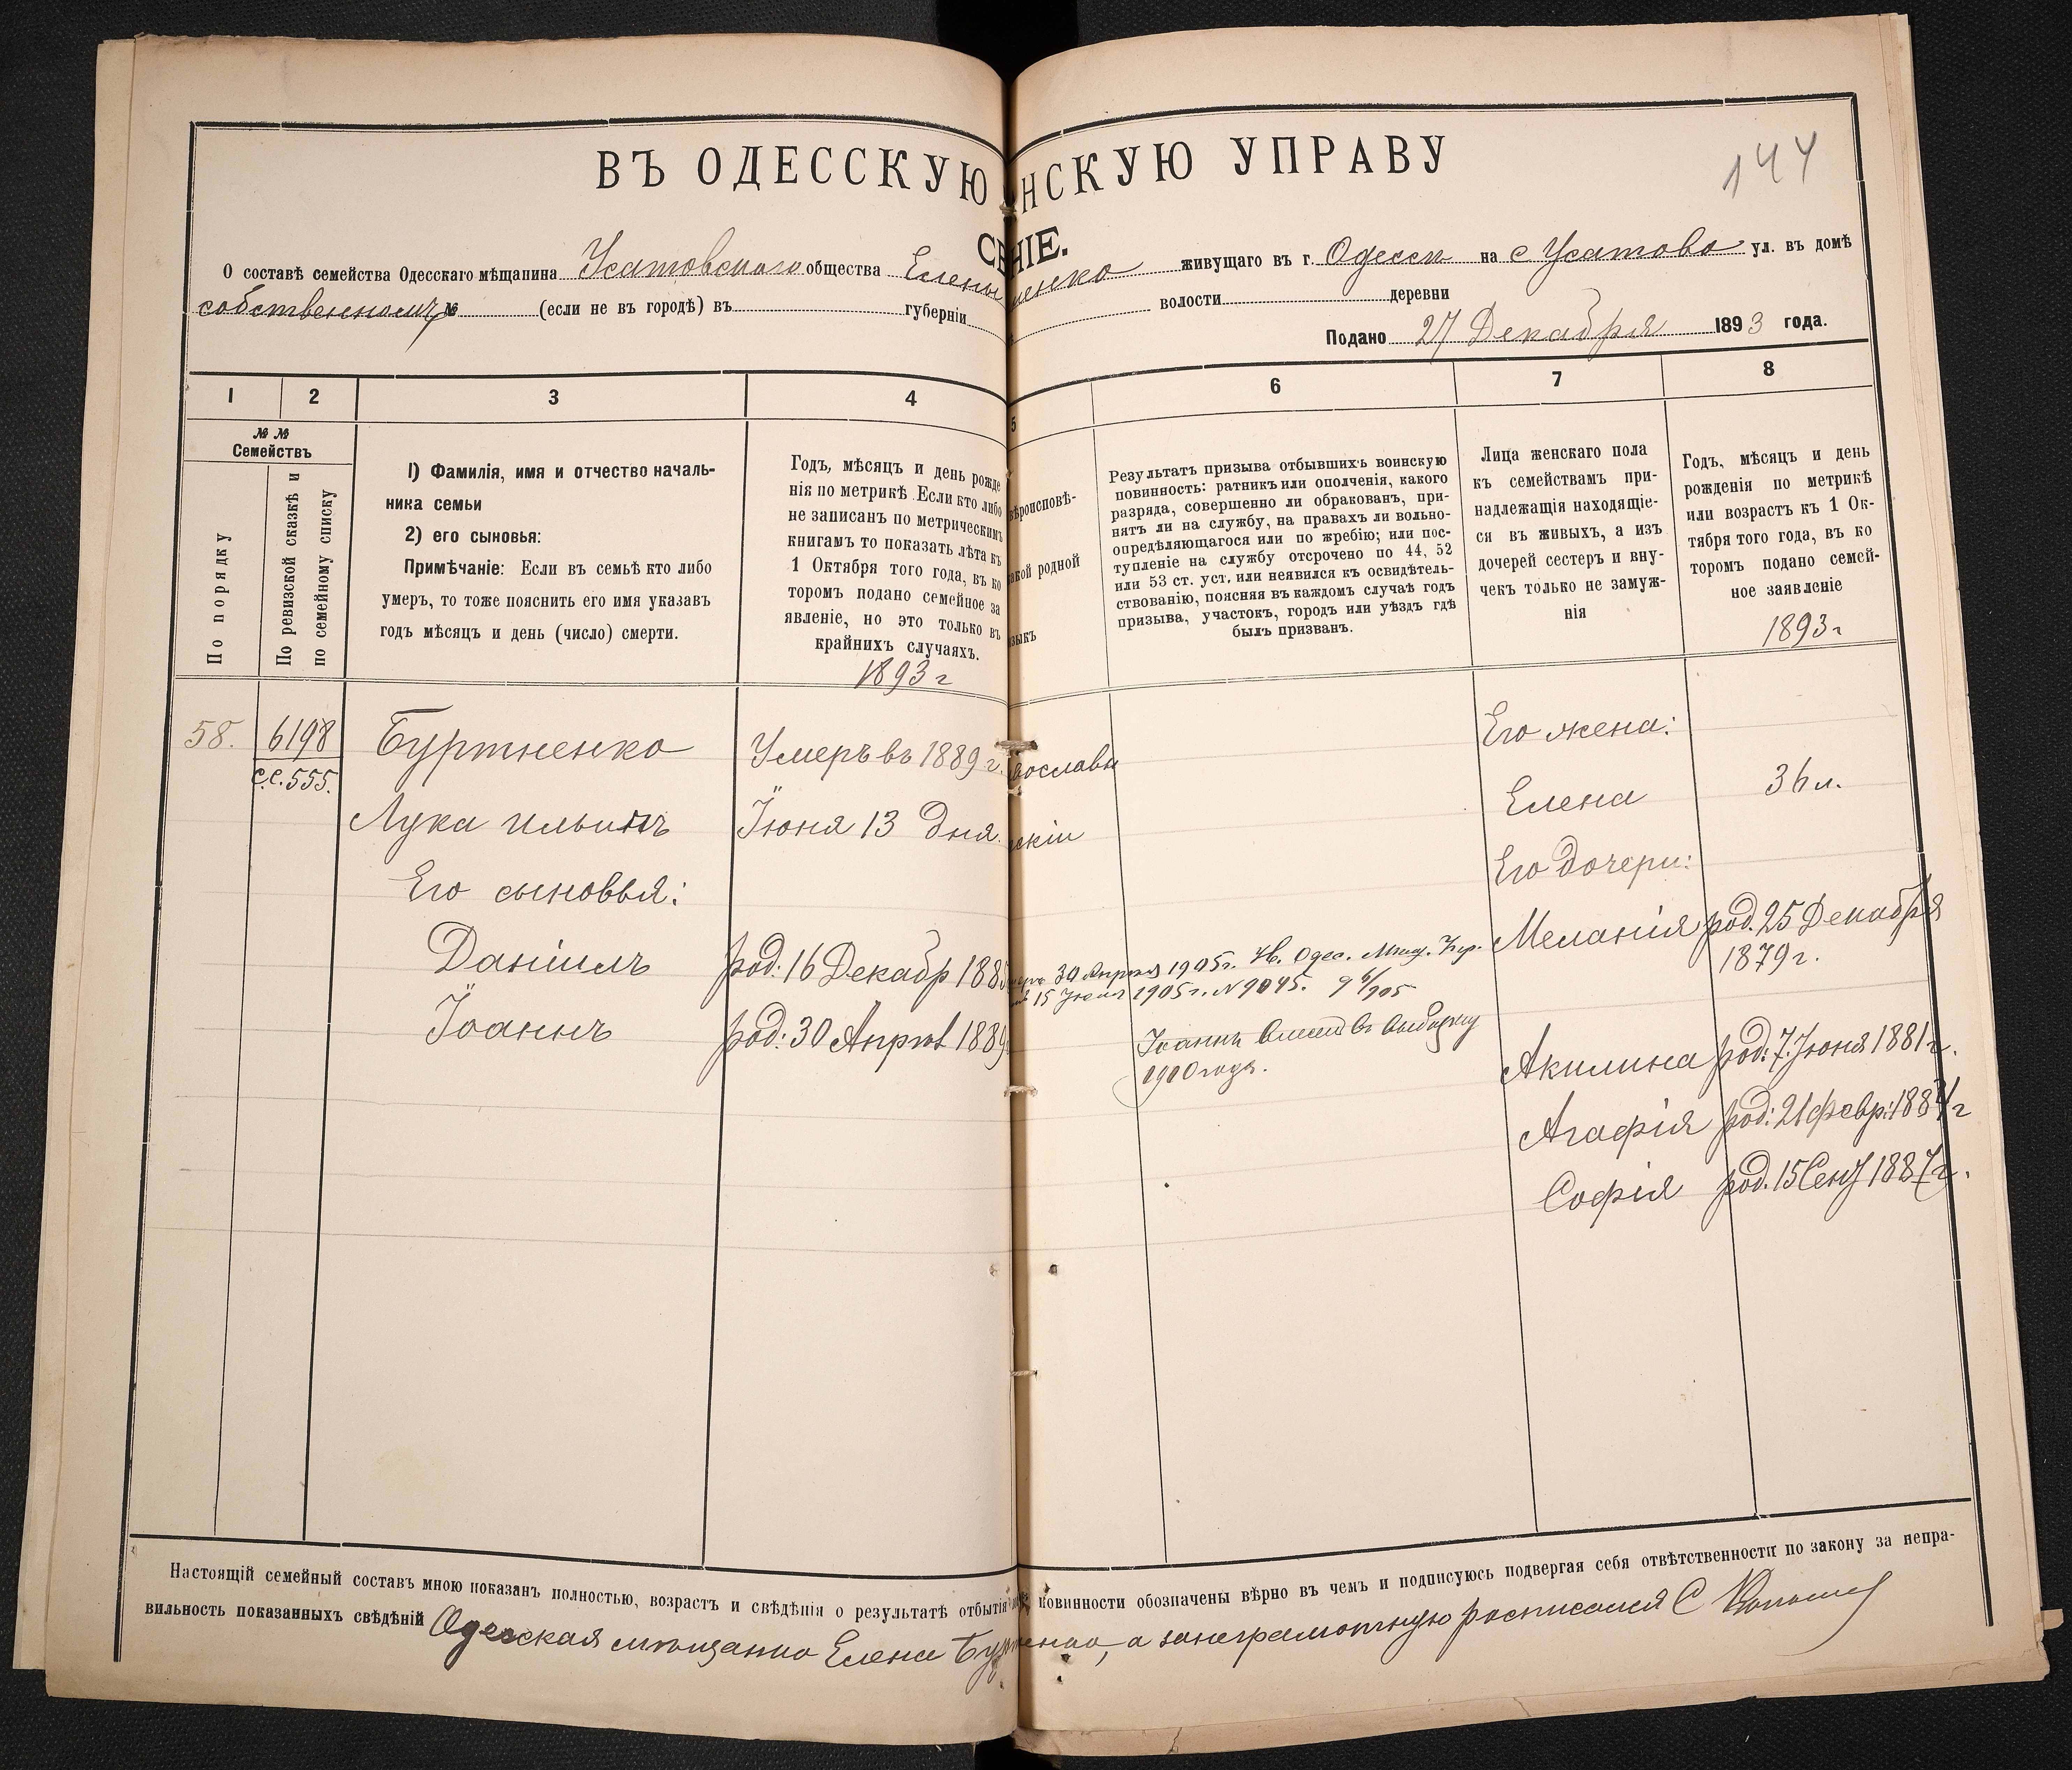 ВЪ ОДЕССКУЮ НСКУЮ УПРАВУ
144
НІЕ.
О составѣ семейства Одесскаго мѣщанина Усатовскаго общества Елены енко живущаго въ г. Одессѣ на с Усатово ул. въ домѣ
собственномъ № (если не въ городѣ) въ губерніи волости деревни
Подано 27 Декабря 1893 года.
1 2 3 4 5 6 7 8
№ №
Семействъ
По порядку
По ревизской сказкѣ и
по семейному списку
1) Фамилія, имя и отчество началь-
ника семьи
2) его сыновья:
Примѣчаніе: Если въ семьѣ кто либо
умеръ, то тоже пояснить его имя указавъ
годъ мѣсяцъ и день (число) смерти.
Годъ, мѣсяцъ и день рожде
нія по метрикѣ Если кто либо
не записанъ по метрическимъ
книгамъ то показать лѣта къ
1 Октября того года, въ ко
торомъ подано семейное за
явленіе, но это только въ
крайнихъ случаяхъ.
1893 г
ѣроисповѣ-
акой родной
зыкъ
Результатъ призыва отбывшихъ воинскую
повинность: ратникъ или ополченія, какого
разряда, совершенно ли обракованъ, при-
нятъ ли на службу, на правахъ ли вольно-
опредѣляющагося или по жребію; или пос-
тупленіе на службу отсрочено по 44, 52
или 53 ст. уст. или неявился къ освидѣтель-
ствованію, поясняя въ каждомъ случаѣ годъ
призыва, участокъ, городъ или уѣздъ гдѣ
былъ призванъ.
Лица женскаго пола
къ семействамъ при-
надлежащія находящіе-
ся въ живыхъ, а изъ
дочерей сестеръ и вну-
чекъ только не замуж-
нія
Годъ, мѣсяцъ и день
рожденія по метрикѣ
или возрастъ къ 1 Ок-
тября того года, въ ко
торомъ подано семей-
ное заявленіе
1893 г
58. 6198 Буртненко Умеръ въ 1889 г. вославн Его жена:
с.с. 555.
Лука Ильинъ Іюня 13 дня. скій Елена 36 л.
Его сыновья: Его дочери:
Даніилъ род: 16 Декабр 188 30 Апрѣля 1905 г. Одес. Мѣщ. Упр. Меланія род. 25 Декабря
15 1905 г. № 9045. 1879 г.
Іоаннъ род: 30 Апрѣл 1889 Іоаннъ
1910 года.
Акилина род: 7 Іюня 1881 г.
Агафія род: 21 февр: 1884 г
София род. 15 Сент 1887 г.
Настоящій семейный составъ мною показанъ полностью, возрастъ и свѣдѣнія о результатѣ отбытія повинности обозначены вѣрно въ чемъ и подписуюсь подвергая себя отвѣтственности по закону за непра-
вильность показанныхъ свѣдѣній Одесская мѣщанка Елена Бур енко, а занеграмотную росписался С